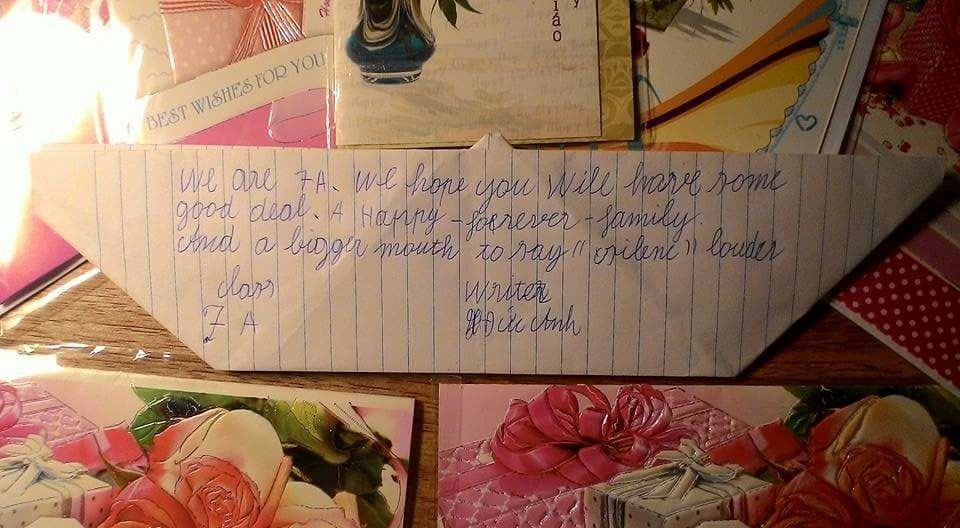 BEST WISHES FOR YOU
y
iáo
We are 7A. We hope you will have some
good deal. A Happy-foerever-family.
And a bigger mouth to say "silent" louder
Class
7 A
Writer
Đức Anh